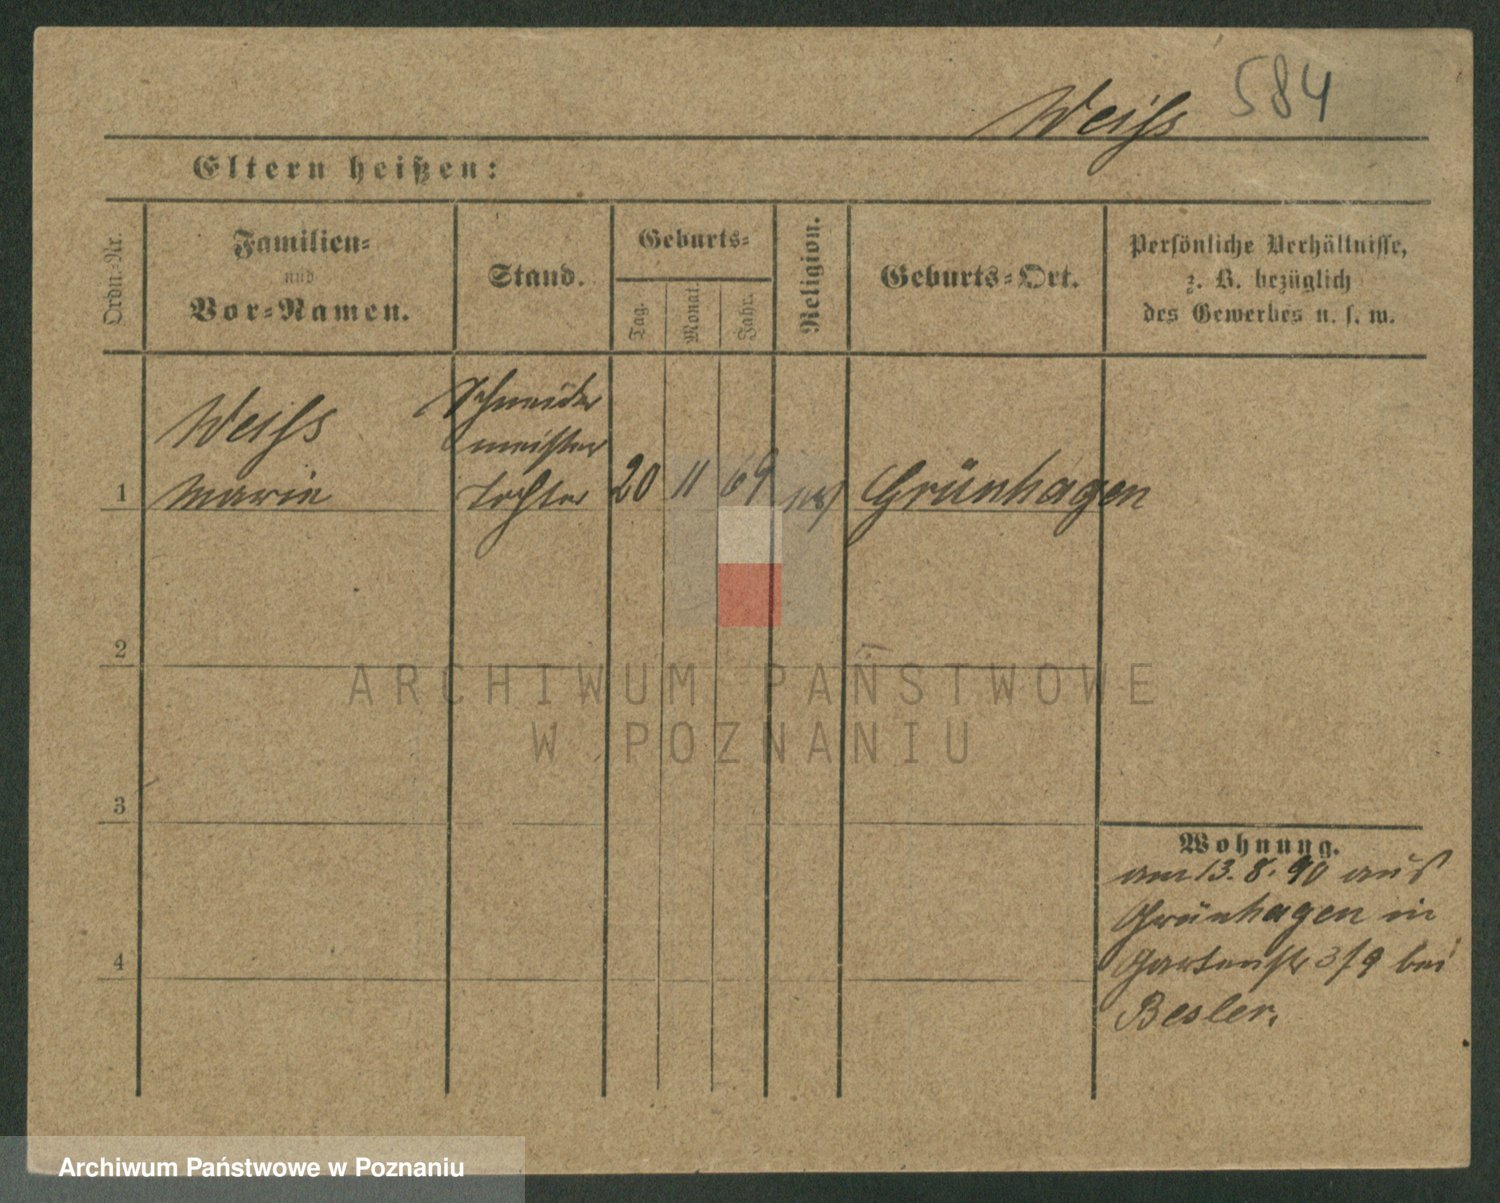 584
Weiß
Eltern heißen:
Ordn.-Nr.
Familien-
und
Vor-Namen.
Stand.
Geburts-
Tag.
Monat.
Jahr.
Religion.
Geburts-Ort.
Persönliche Verhältnisse,
z. B. bezüglich
des Gewerbes u. s. w.
1
Weiß
Marie
Schneider
meister
tochter
20
11
69
Grünhagen
2
3
4
Wohnung.
am 13. 8. 90 aus
Grünhagen in
Gartenstr 3/9 bei
Besler.
ARCHIWUM PAŃSTWOWE
W POZNANIU
Archiwum Państwowe w Poznaniu